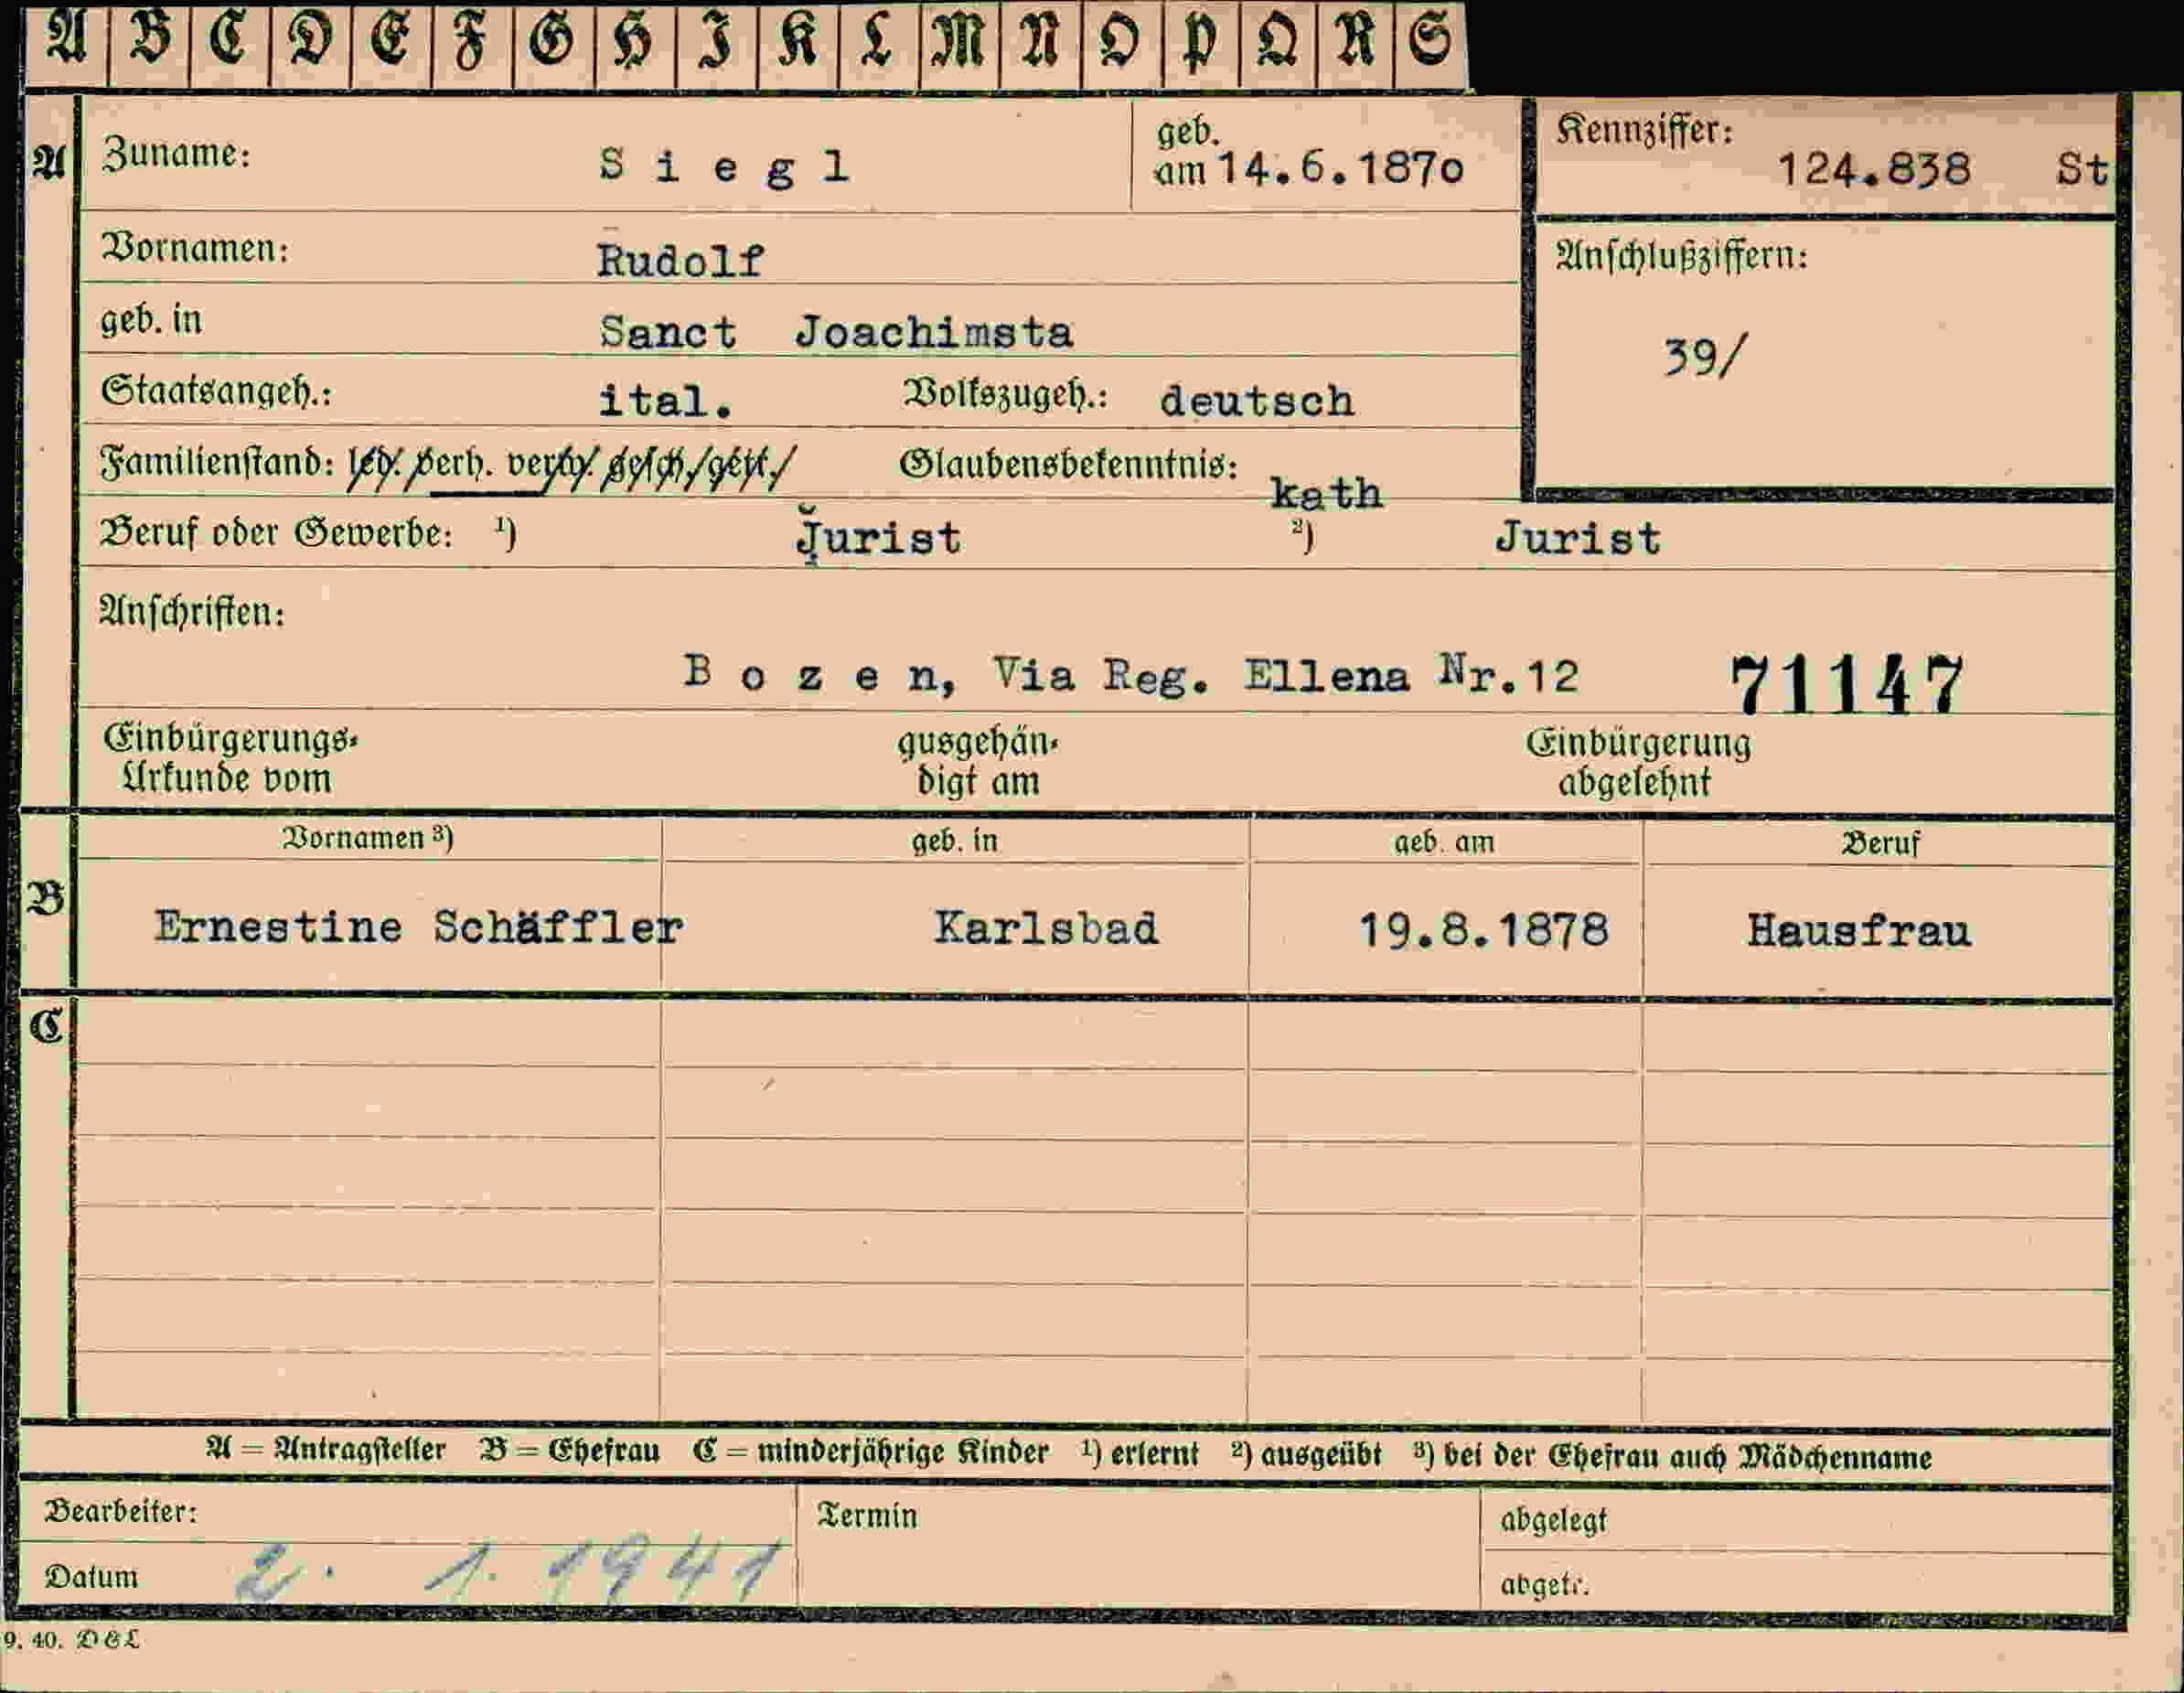 A B C D E F G H I K L M N O P Q R S
A Zuname: Siegl geb. am 14.6.187o Kennziffer: 124.838 St
Vornamen: Rudolf Anschlußziffern:
geb. in Sanct Joachimsta
39/
Staatsangeh.: ital. Volkszugeh.: deutsch
Familienstand: led. verh. verw. gesch. Glaubensbekenntnis: kath
Beruf oder Gewerbe: ¹) Jurist ²) Jurist
Anschriften:
Bozen, Via Reg. Ellena Nr.12 71147
Einbürgerungs- ausgehän- Einbürgerung
Urkunde vom digt am abgelehnt
Vornamen ³) geb. in geb. am Beruf
B Ernestine Schäffler Karlsbad 19.8.1878 Hausfrau
C
A = Antragsteller B = Ehefrau C = minderjährige Kinder ¹) erlernt ²) ausgeübt ³) bei der Ehefrau auch Mädchenname
Bearbeiter: Termin abgelegt
Datum 2. 1. 1941 abgetr.
9. 40. D & L